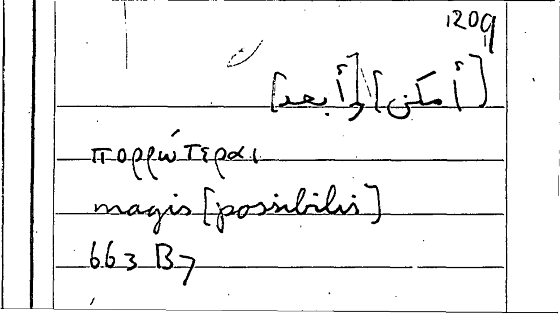 1209
[أمكن] [وأبعد]
πορρώτεραι
magis [possibilis]
663 B7